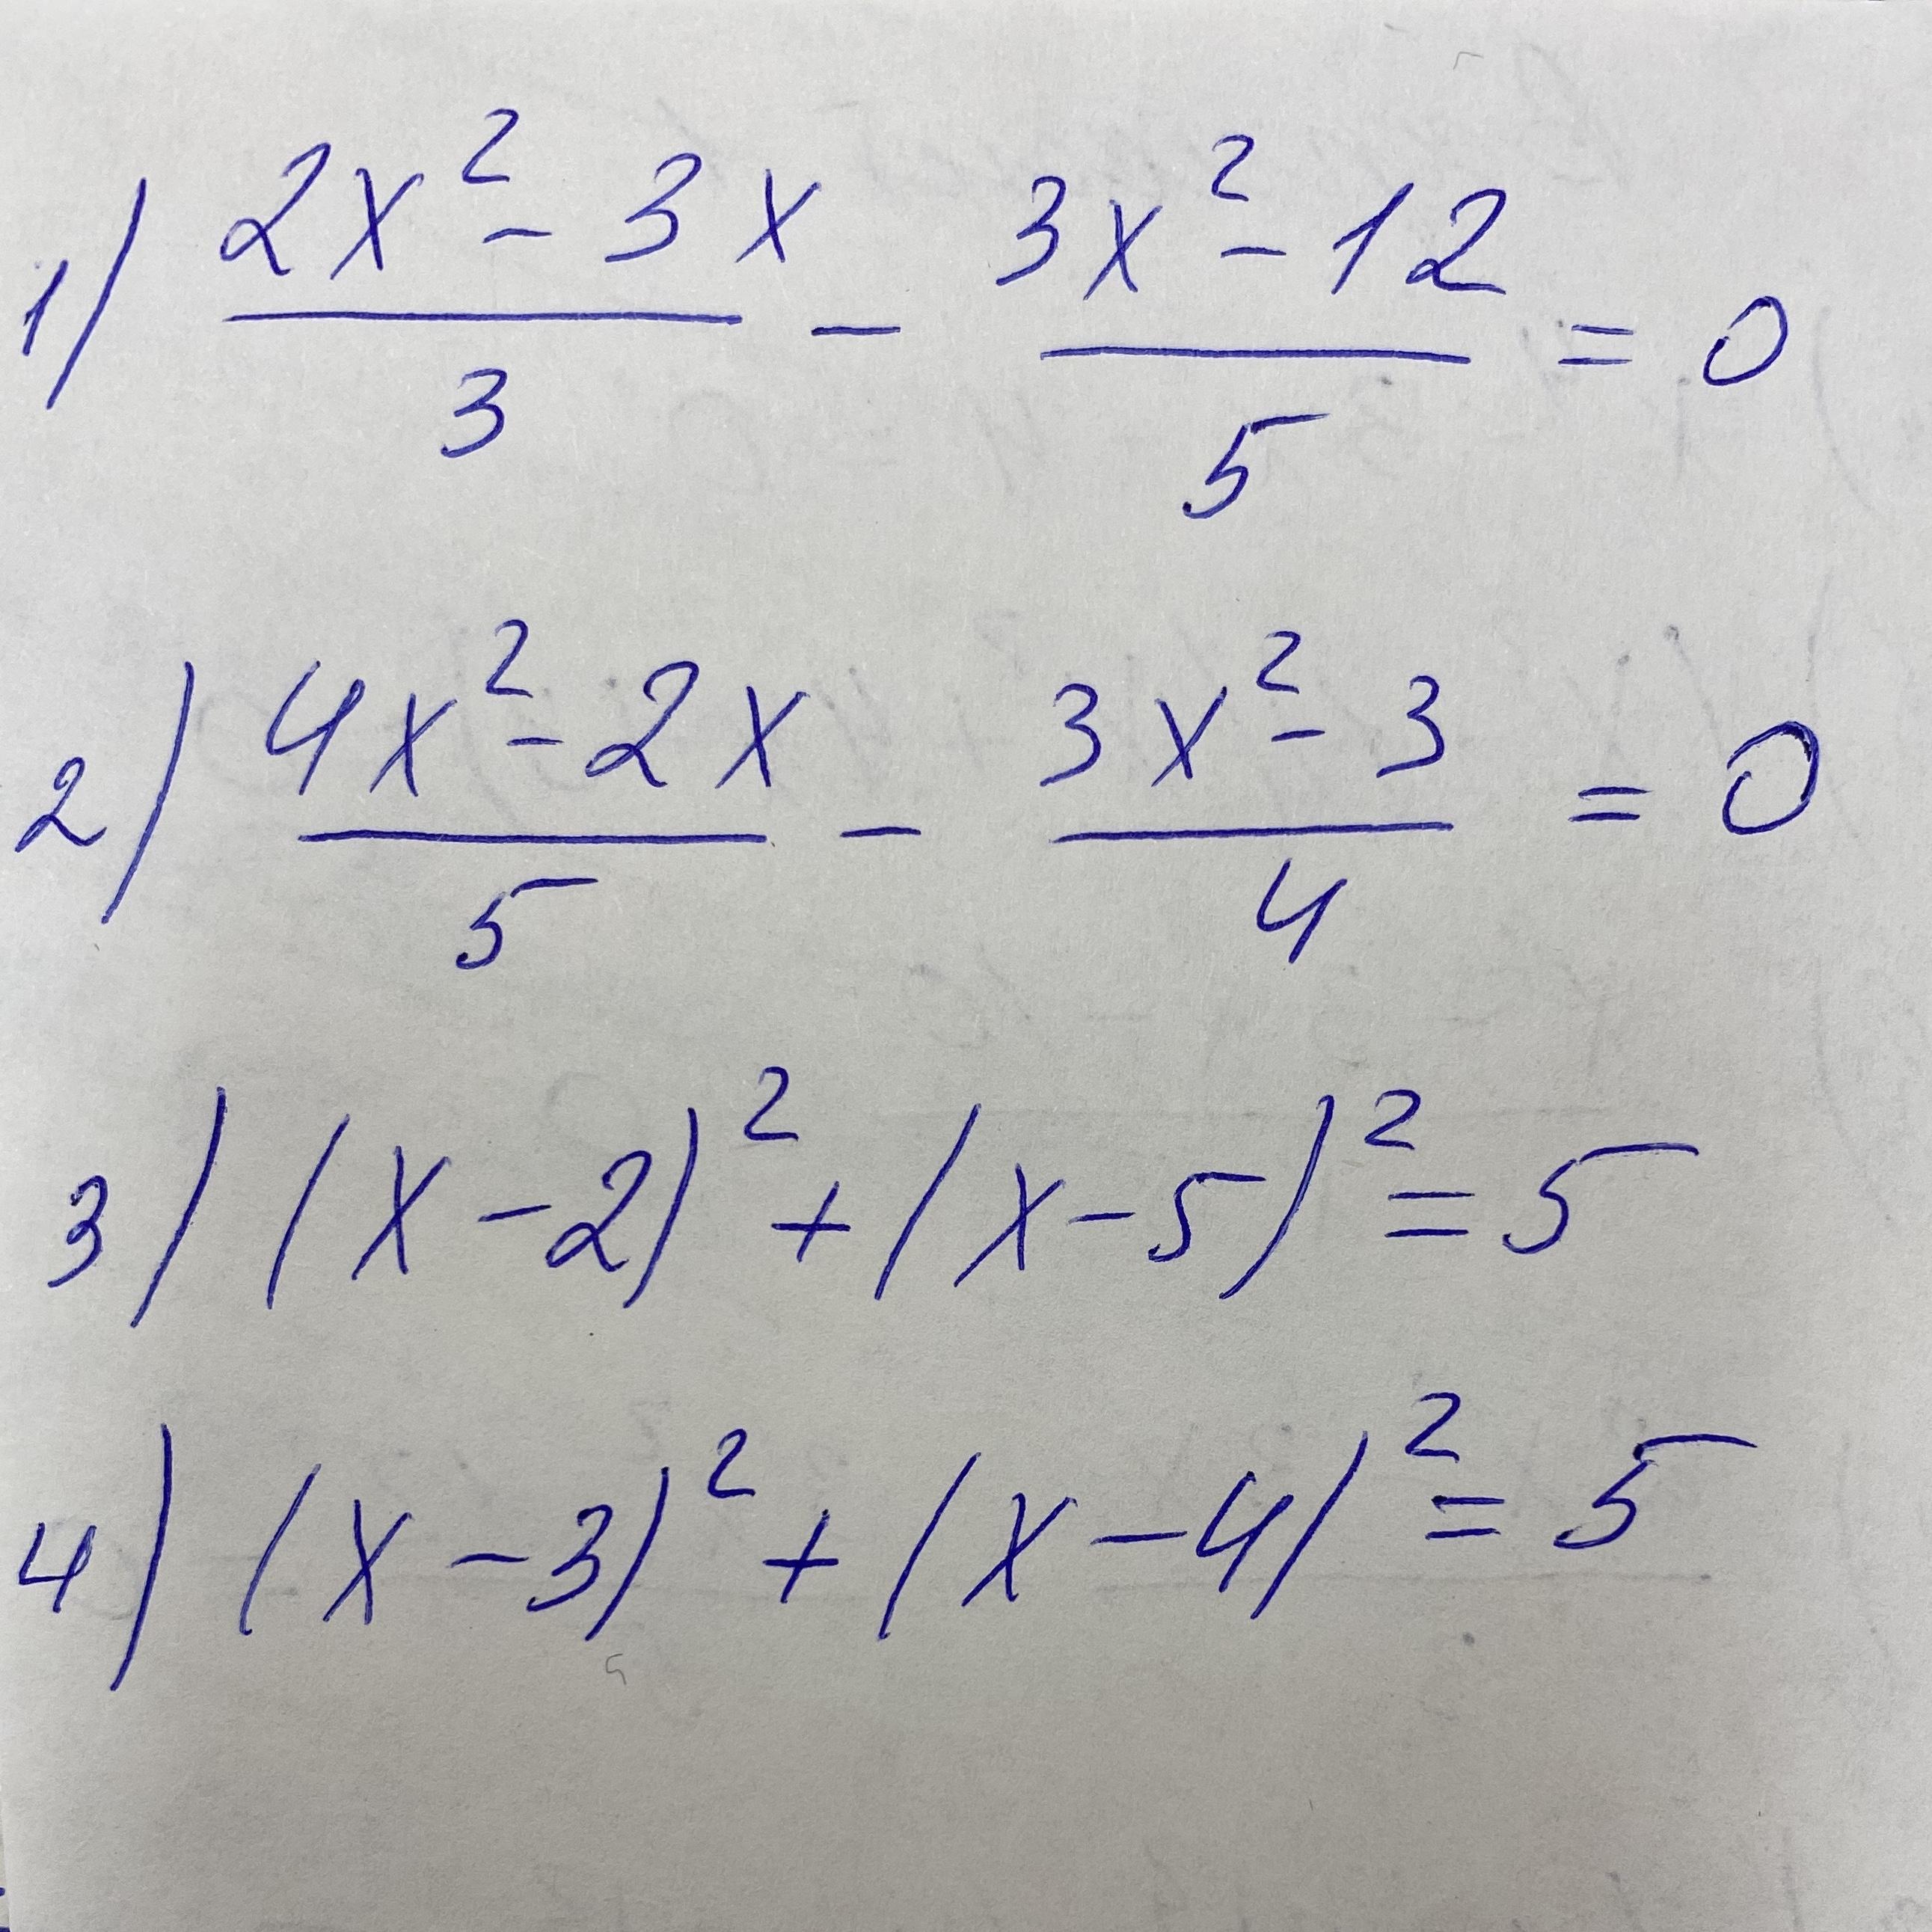 1) (2x² - 3x)/3 - (3x² - 12)/5 = 0
2) (4x² - 2x)/5 - (3x² - 3)/4 = 0
3) (x - 2)² + (x - 5)² = 5
4) (x - 3)² + (x - 4)² = 5